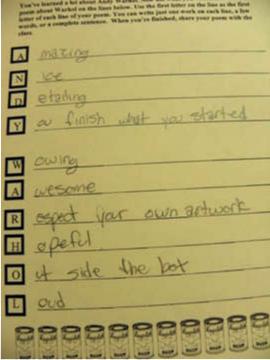 You've learned a lot about Andy Warhol
poem about Warhol on the lines below. Use the first letter on the line as the first
letter of each line of your poem. You can write just one work on each line, a few
words, or a complete sentence. When you've finished, share your poem with the
class.
A mazing
N ice
D etailing
Y ou finish what you started
W owing
A wesome
R espect your own artwork
H opeful
O ut side the box
L oud